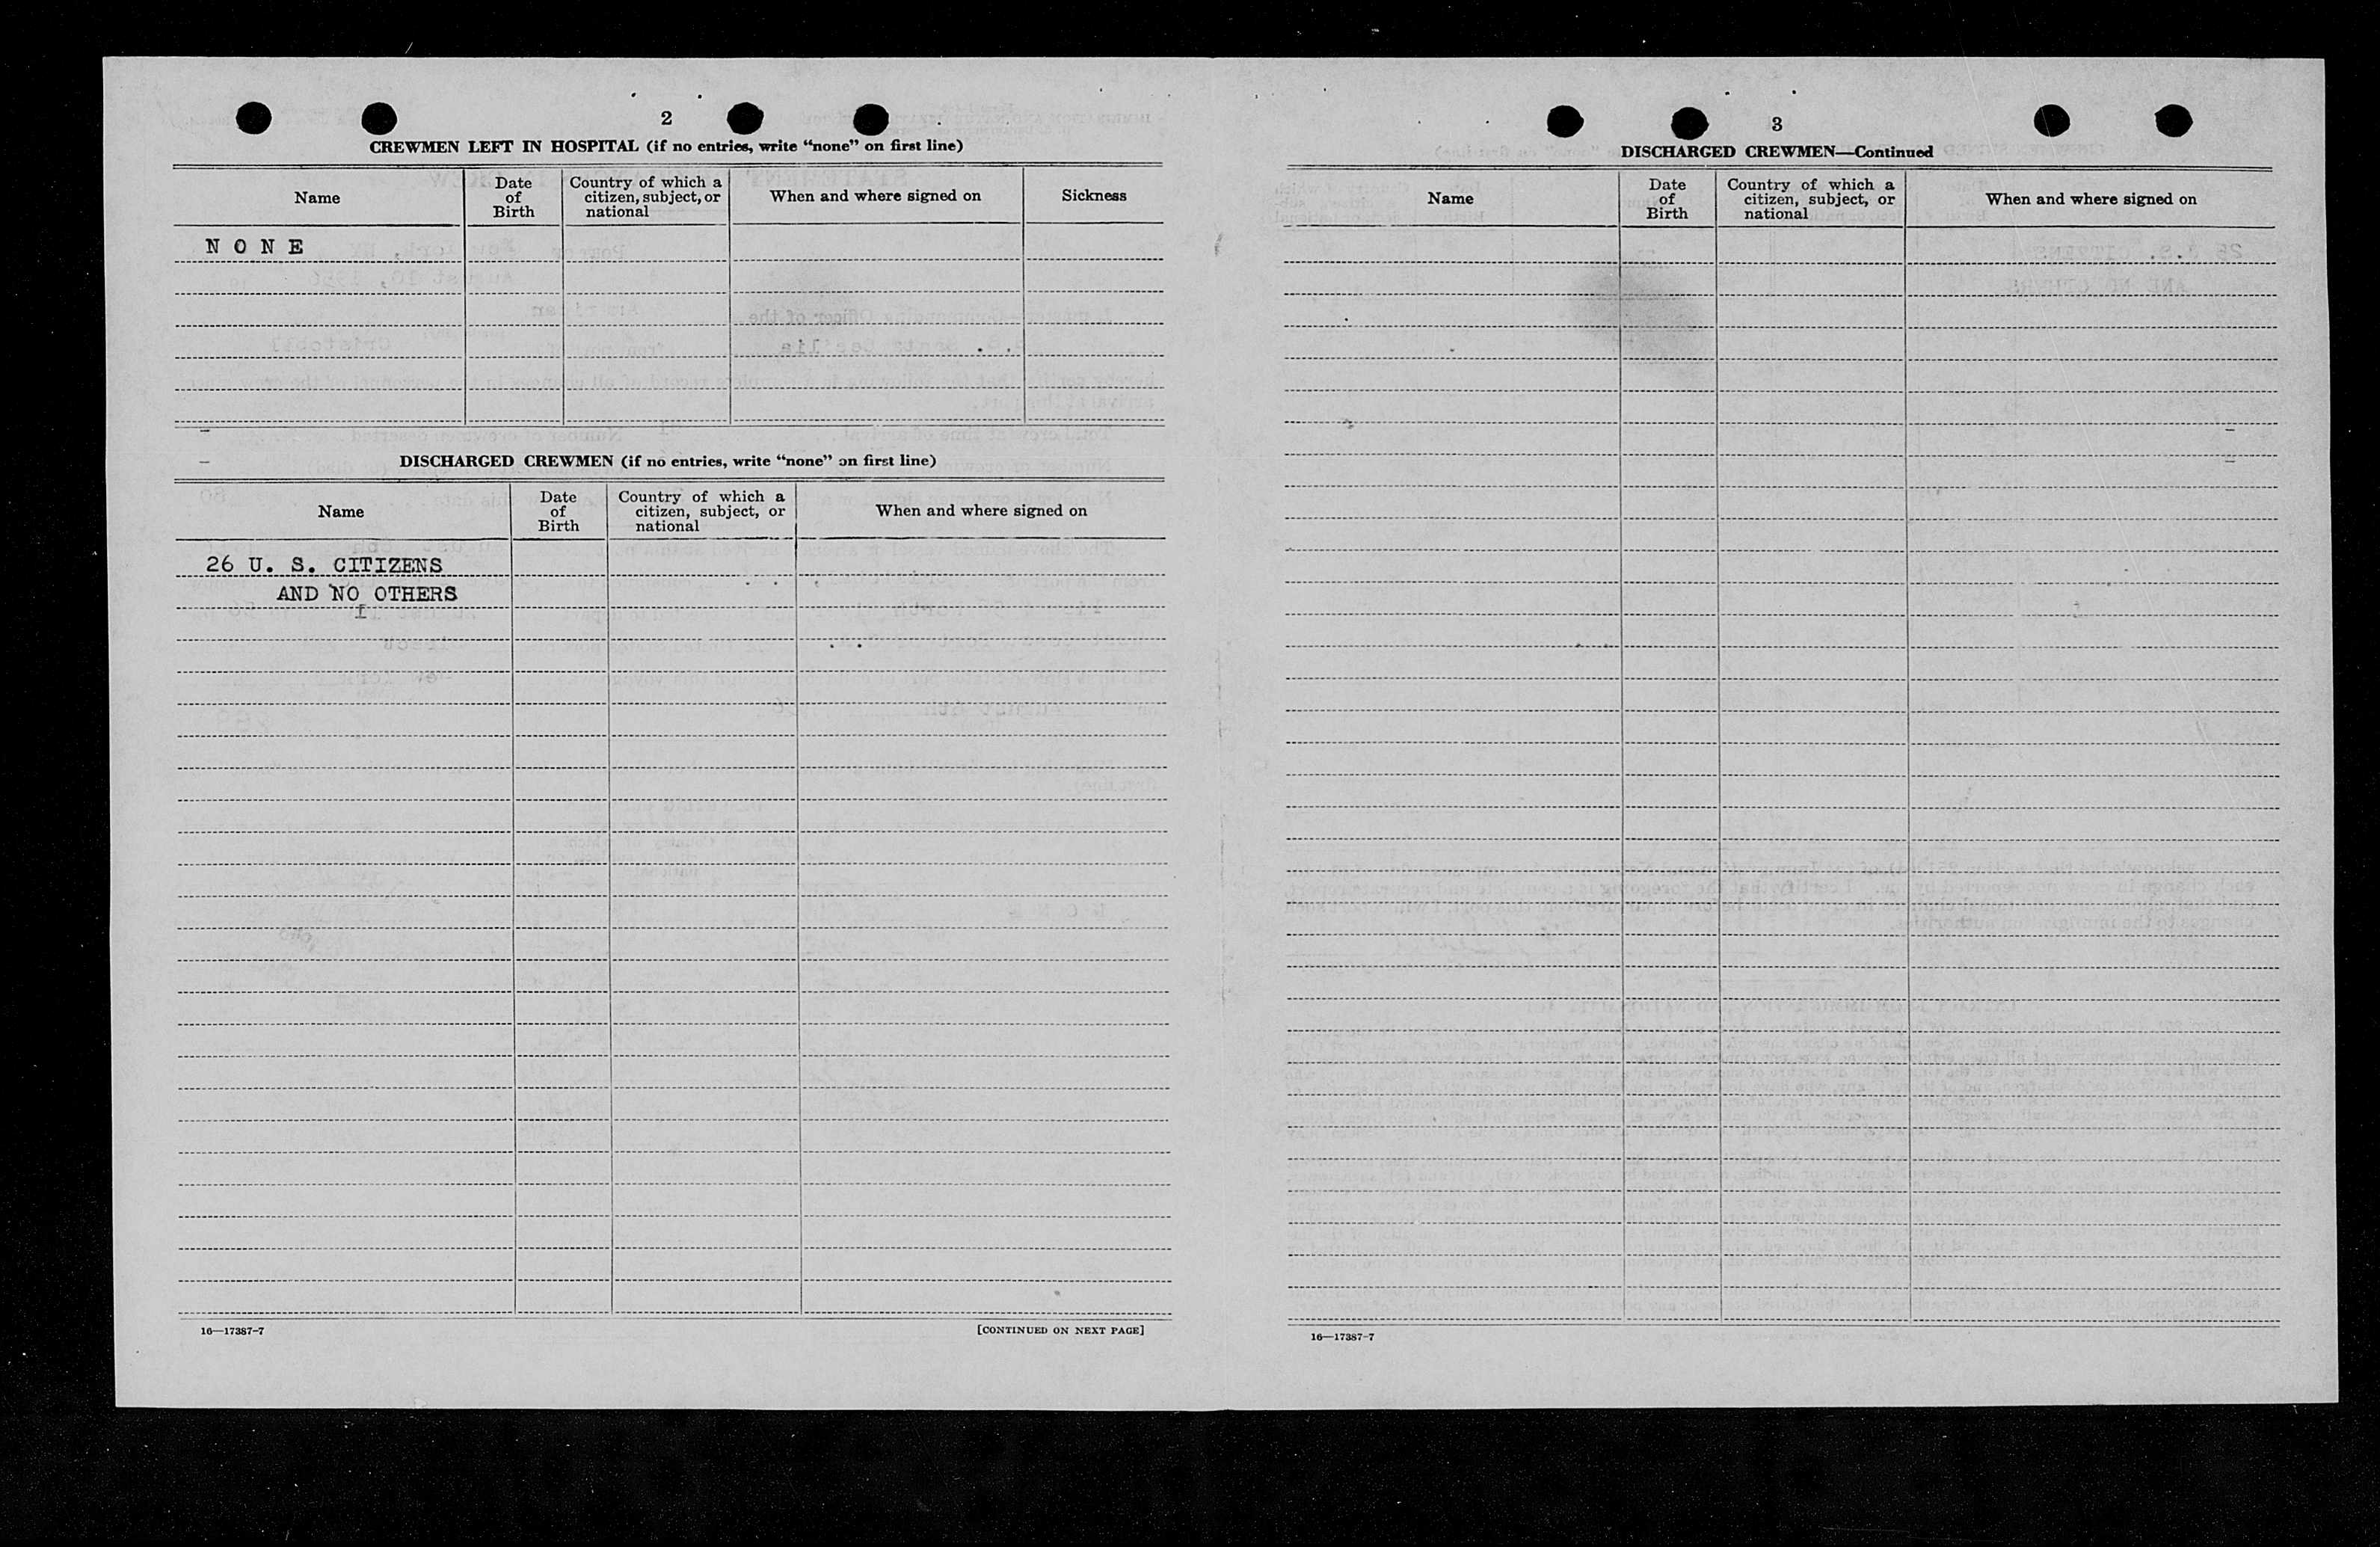 2
CREWMEN LEFT IN HOSPITAL (if no entries, write “none” on first line)
Name
Date of Birth
Country of which a citizen, subject, or national
When and where signed on
Sickness
N O N E
DISCHARGED CREWMEN (if no entries, write “none” on first line)
Name
Date of Birth
Country of which a citizen, subject, or national
When and where signed on
26 U. S. CITIZENS
AND NO OTHERS
16—17387-7
[CONTINUED ON NEXT PAGE]
3
DISCHARGED CREWMEN—Continued
Name
Date of Birth
Country of which a citizen, subject, or national
When and where signed on
16—17387-7